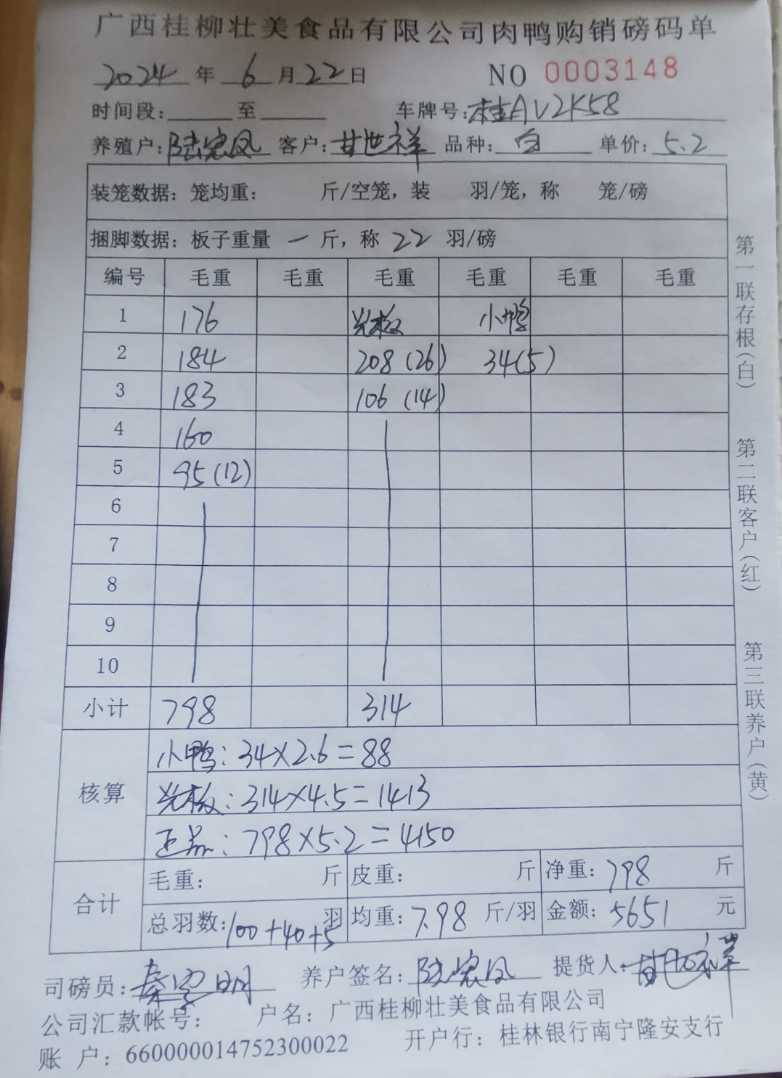 广西桂柳壮美食品有限公司肉鸭购销磅码单
2024 年 6 月 22 日 NO 0003148
时间段: 至 车牌号: 桂AV2K58
养殖户: 陆宏凤 客户: 甘世祥 品种: 白 单价: 5.2
装笼数据: 笼均重: 斤/空笼, 装 羽/笼, 称 笼/磅
捆脚数据: 板子重量 一 斤, 称 22 羽/磅
编号 毛重 毛重 毛重 毛重 毛重 毛重
1 176 光板 小鸭
2 184 208 (26) 34(5)
3 183 106 (14)
4 160
5 95 (12)
6
7
8
9
10
小计 798 314
核算 小鸭: 34×2.6=88
光板: 314×4.5=1413
正品: 798×5.2=4150
合计 毛重: 斤 皮重: 斤 净重: 798 斤
总羽数: 100+40+5 羽 均重: 7.98 斤/羽 金额: 5651 元
司磅员: 养户签名: 陆宏凤 提货人: 甘世祥
公司汇款帐号: 户名: 广西桂柳壮美食品有限公司
账 户: 660000014752300022 开户行: 桂林银行南宁隆安支行
第一联存根(白)
第二联客户(红)
第三联养户(黄)